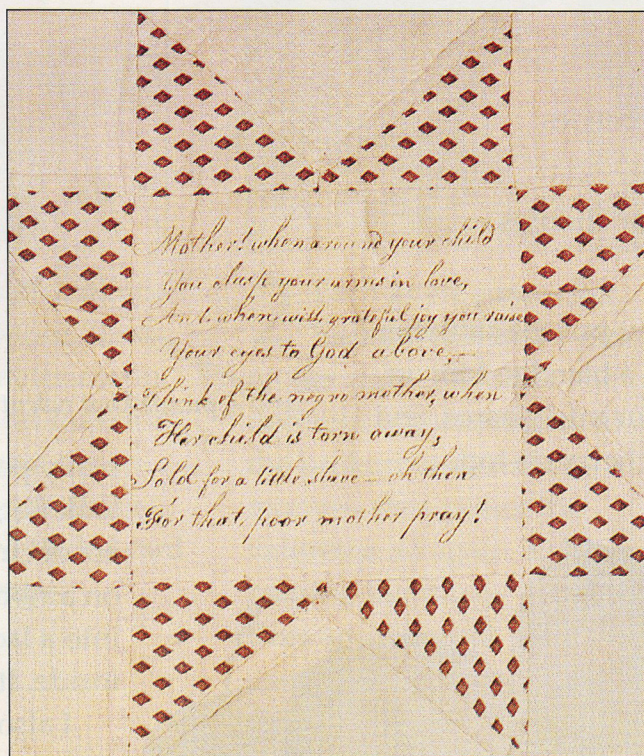 Mother! when around your child
You clasp your arms in love,
And when with grateful joy you raise
Your eyes to God above —
Think of the negro mother, when
Her child is torn away,
Sold for a little slave — oh then
For that poor mother pray!